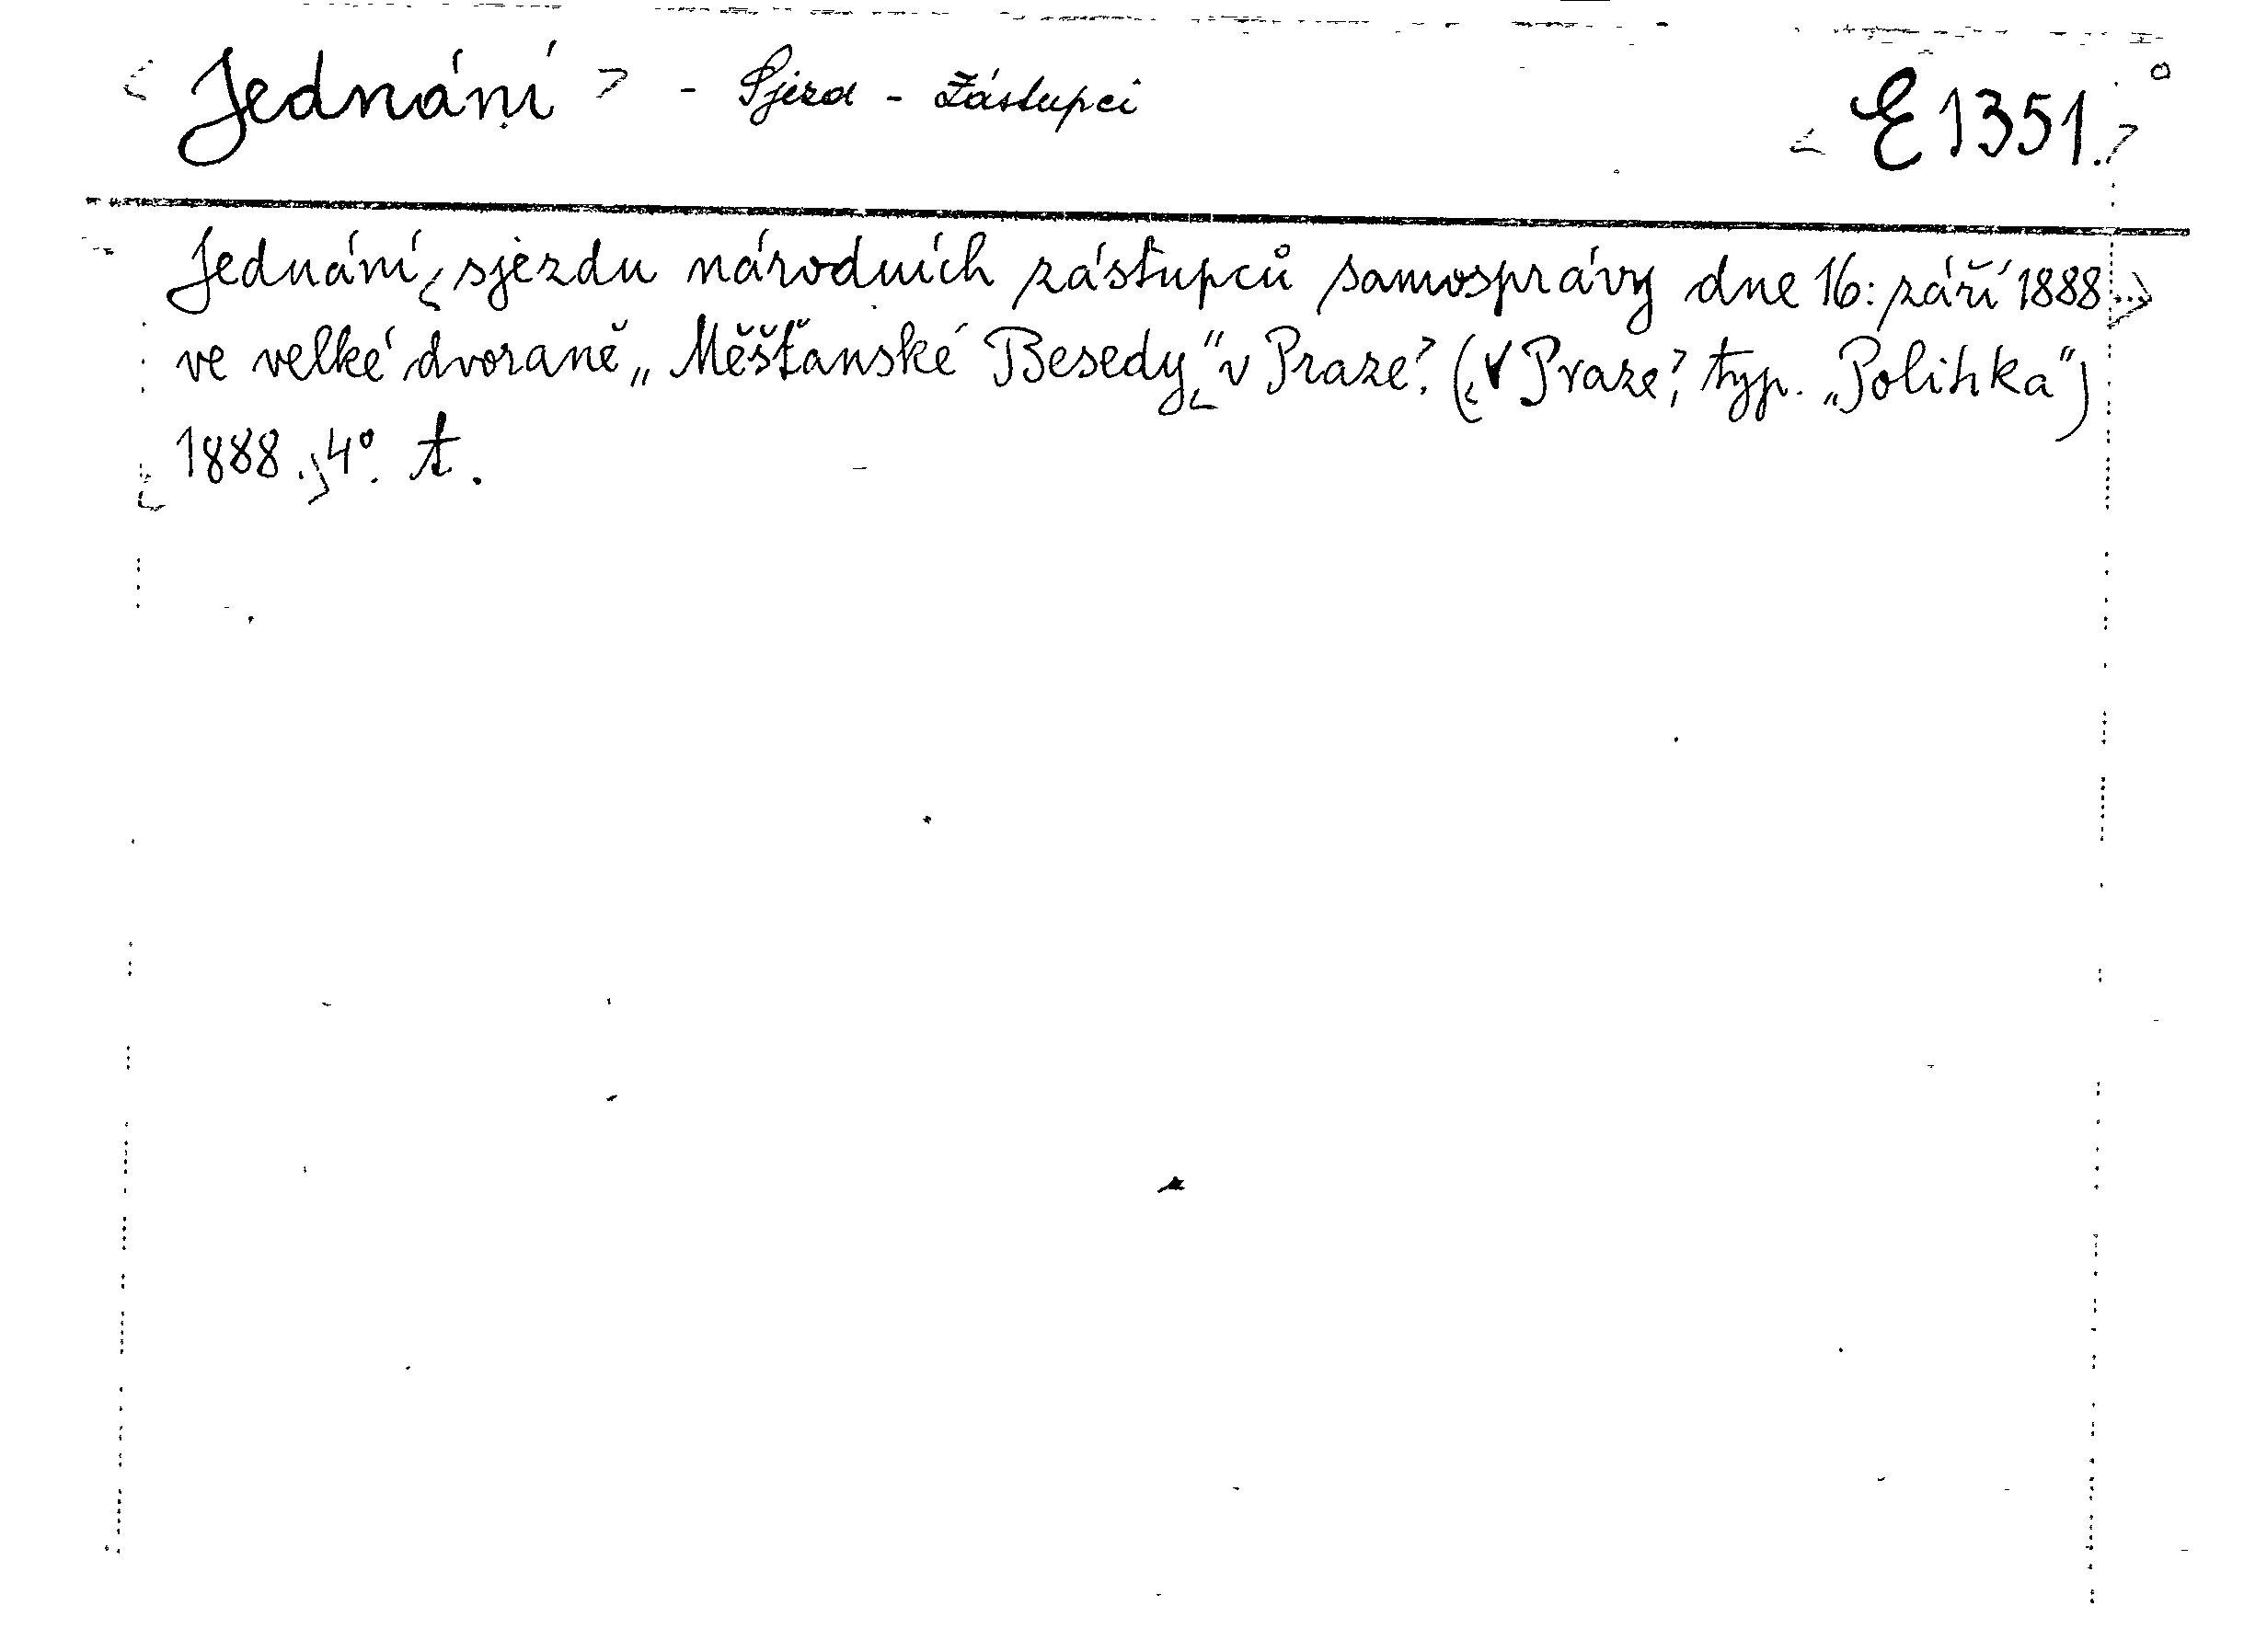 < Jednání > - Sjezd - Zástupci
< E 1351. >
Jednání sjezdu národních zástupců samosprávy dne 16. září 1888
ve velké dvoraně „Měšťanské Besedy“ v Praze. (V Praze, typ. „Politika“)
1888., 4°. t.